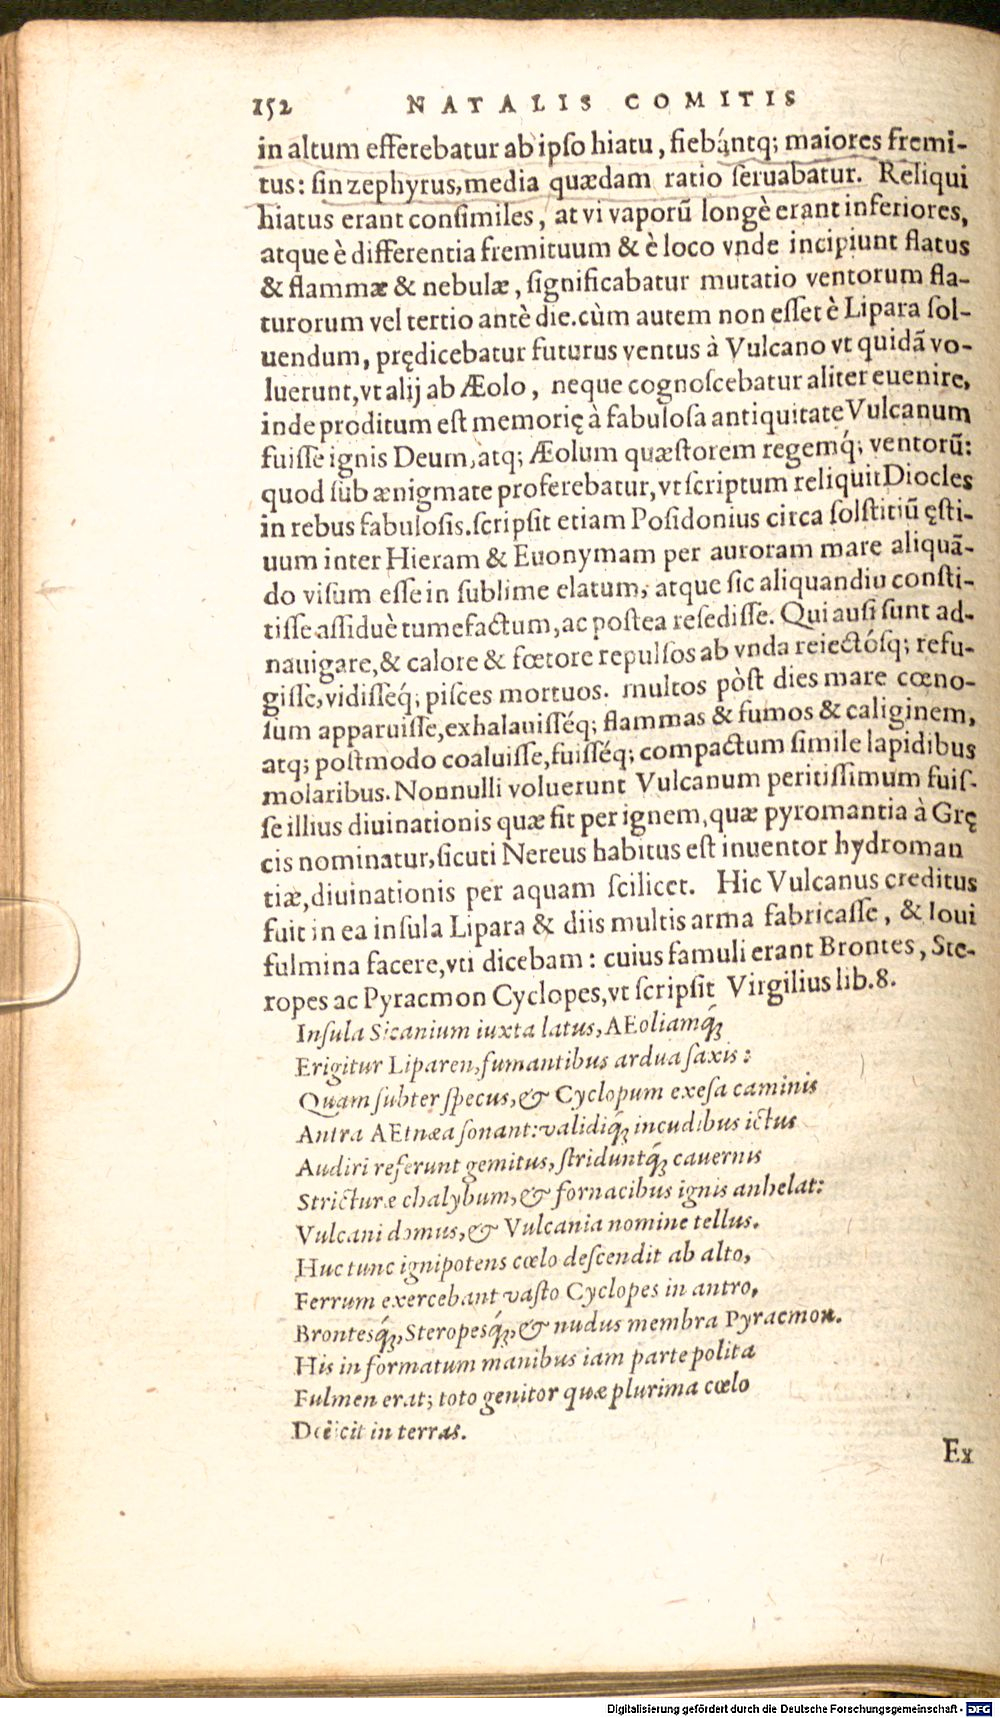 152 NATALIS COMITIS
in altum efferebatur ab ipso hiatu, fiebántq; maiores fremi-
tus: sin zephyrus, media quædam ratio seruabatur. Reliqui
hiatus erant consimiles, at vi vaporũ longè erant inferiores,
atque è differentia fremituum & è loco vnde incipiunt flatus
& flammæ & nebulæ, significabatur mutatio ventorum fla-
turorum vel tertio antè die. cùm autem non esset è Lipara sol-
uendum, prędicebatur futurus ventus à Vulcano vt quidã vo-
luerunt, vt alij ab Æolo, neque cognoscebatur aliter euenire,
inde proditum est memorię à fabulosa antiquitate Vulcanum
fuisse ignis Deum, àtq; Æolum quæstorem regemq́; ventorũ:
quod sub ænigmate proferebatur, vt scriptum reliquit Diocles
in rebus fabulosis. scripsit etiam Posidonius circa solstitiũ ęsti-
uum inter Hieram & Euonymam per auroram mare aliquã-
do visum esse in sublime elatum, atque sic aliquandiu consti-
tisse assiduè tumefactum, ac postea resedisse. Qui ausi sunt ad-
nauigare, & calore & fœtore repulsos ab vnda reiectósq; refu-
gisse, vidisseq́; pisces mortuos. multos pòst dies mare cœno-
sum apparuisse, exhalauisséq; flammas & fumos & caliginem,
atq; postmodo coaluisse, fuisséq; compactum simile lapidibus
molaribus. Nonnulli voluerunt Vulcanum peritissimum fuis-
se illius diuinationis quæ fit per ignem, quæ pyromantia à Grę
cis nominatur, sicuti Nereus habitus est inuentor hydroman
tiæ, diuinationis per aquam scilicet. Hic Vulcanus creditus
fuit in ea insula Lipara & diis multis arma fabricasse, & Ioui
fulmina facere, vti dicebam: cuius famuli erant Brontes, Ste-
ropes ac Pyracmon Cyclopes, vt scripsit Virgilius lib. 8.
Insula Sicanium iuxta latus, AEoliamq́;
Erigitur Liparen, fumantibus ardua saxis:
Quam subter specus, & Cyclopum exesa caminis
Antra AEtnæa sonant: validiq́; incudibus ictus
Audiri referunt gemitus, striduntq́; cauernis
Stricturæ chalybum, & fornacibus ignis anhelat:
Vulcani domus, & Vulcania nomine tellus.
Huc tunc ignipotens cœlo descendit ab alto,
Ferrum exercebant vasto Cyclopes in antro,
Brontesq́;, Steropesq́;, & nudus membra Pyracmon.
His informatum manibus iam parte polita
Fulmen erat; toto genitor quæ plurima cœlo
Deëicit in terras.
Ex
Digitalisierung gefördert durch die Deutsche Forschungsgemeinschaft - DFG